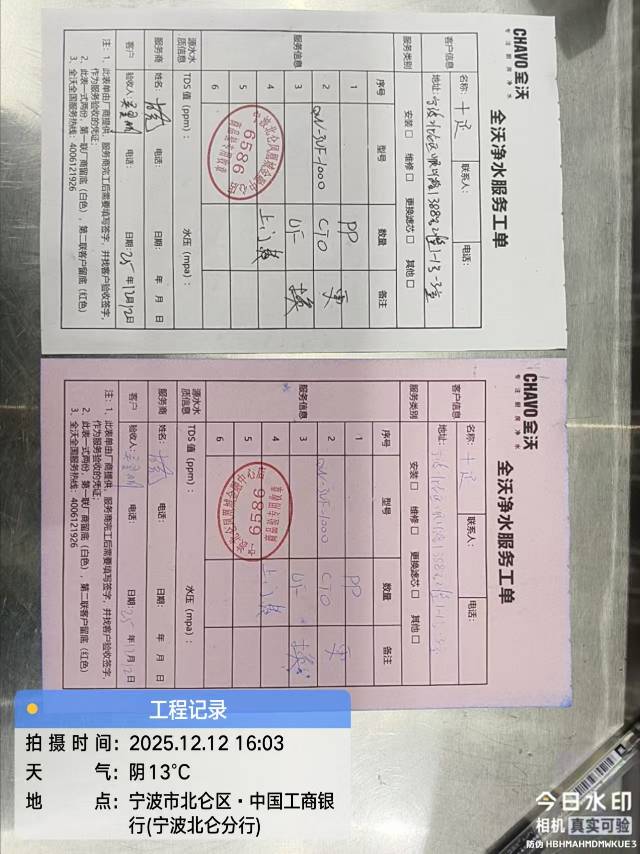 CHAVO全沃
专注厨房净水
全沃净水服务工单
客户信息
名称：十足
联系人：
电话：
地址：
服务类别
安装□ 维修□ 更换滤芯□ 其他□
服务信息
序号 型号 数量 备注
1 PP
2 QW-3UF-1000 CTO 更
3 UF 换
4 上门费
5
6
6586
源水水质信息
TDS 值（ppm）：
水压（mpa）：
服务商
姓名：
电话：
日期： 年 月 日
客户
验收人：
电话：
日期：25年12月12日
注：1、此表单由厂商提供，服务商完工后需要填写签字，并找客户验收签字，
作为服务验收的凭证；
2、此表一式两份，第一联厂商留底（白色），第二联客户留底（红色）
3、全沃全国服务热线：4006121926
CHAVO全沃
专注厨房净水
全沃净水服务工单
客户信息
名称：十足
联系人：
电话：
地址：
服务类别
安装□ 维修□ 更换滤芯□ 其他□
服务信息
序号 型号 数量 备注
1 PP
2 QW-3UF-1000 CTO 更
3 UF 换
4 上门费
5
6
6586
源水水质信息
TDS 值（ppm）：
水压（mpa）：
服务商
姓名：
电话：
日期： 年 月 日
客户
验收人：
电话：
日期：25年12月12日
注：1、此表单由厂商提供，服务商完工后需要填写签字，并找客户验收签字，
作为服务验收的凭证；
2、此表一式两份，第一联厂商留底（白色），第二联客户留底（红色）
3、全沃全国服务热线：4006121926
工程记录
拍摄时间：2025.12.12 16:03
天气：阴13℃
地点：宁波市北仑区·中国工商银
行(宁波北仑分行)
今日水印
相机 真实可验
防伪 HBHMAHMDMWKUE3